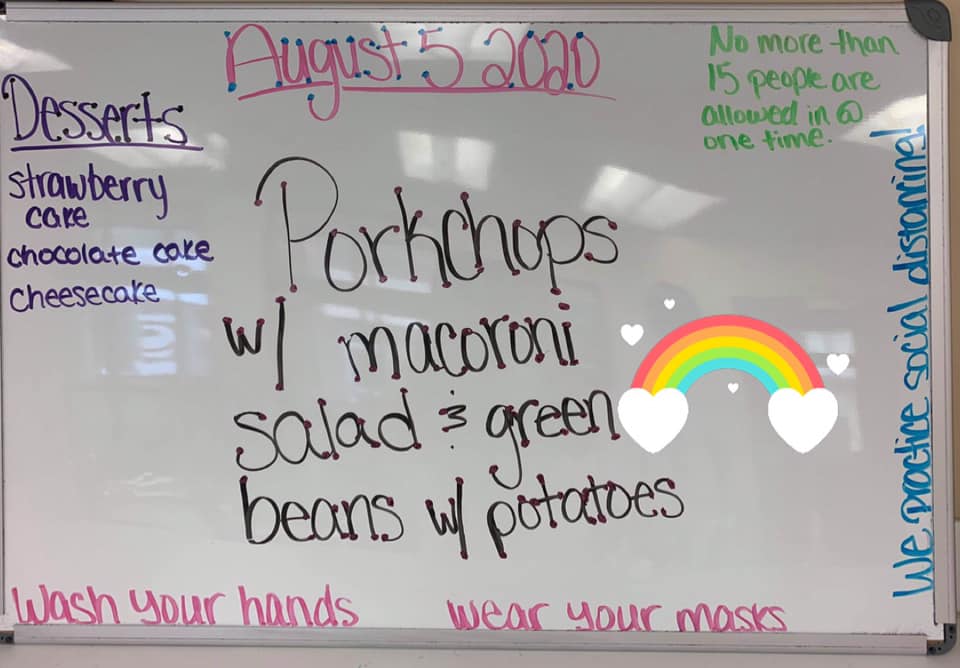 August 5 2020
No more than
15 people are
allowed in @
one time.
Desserts
strawberry
cake
chocolate cake
cheesecake
Porkchops
w/ macoroni
salad & green
beans w/ potatoes
We practice social distancing!
Wash your hands
wear your masks